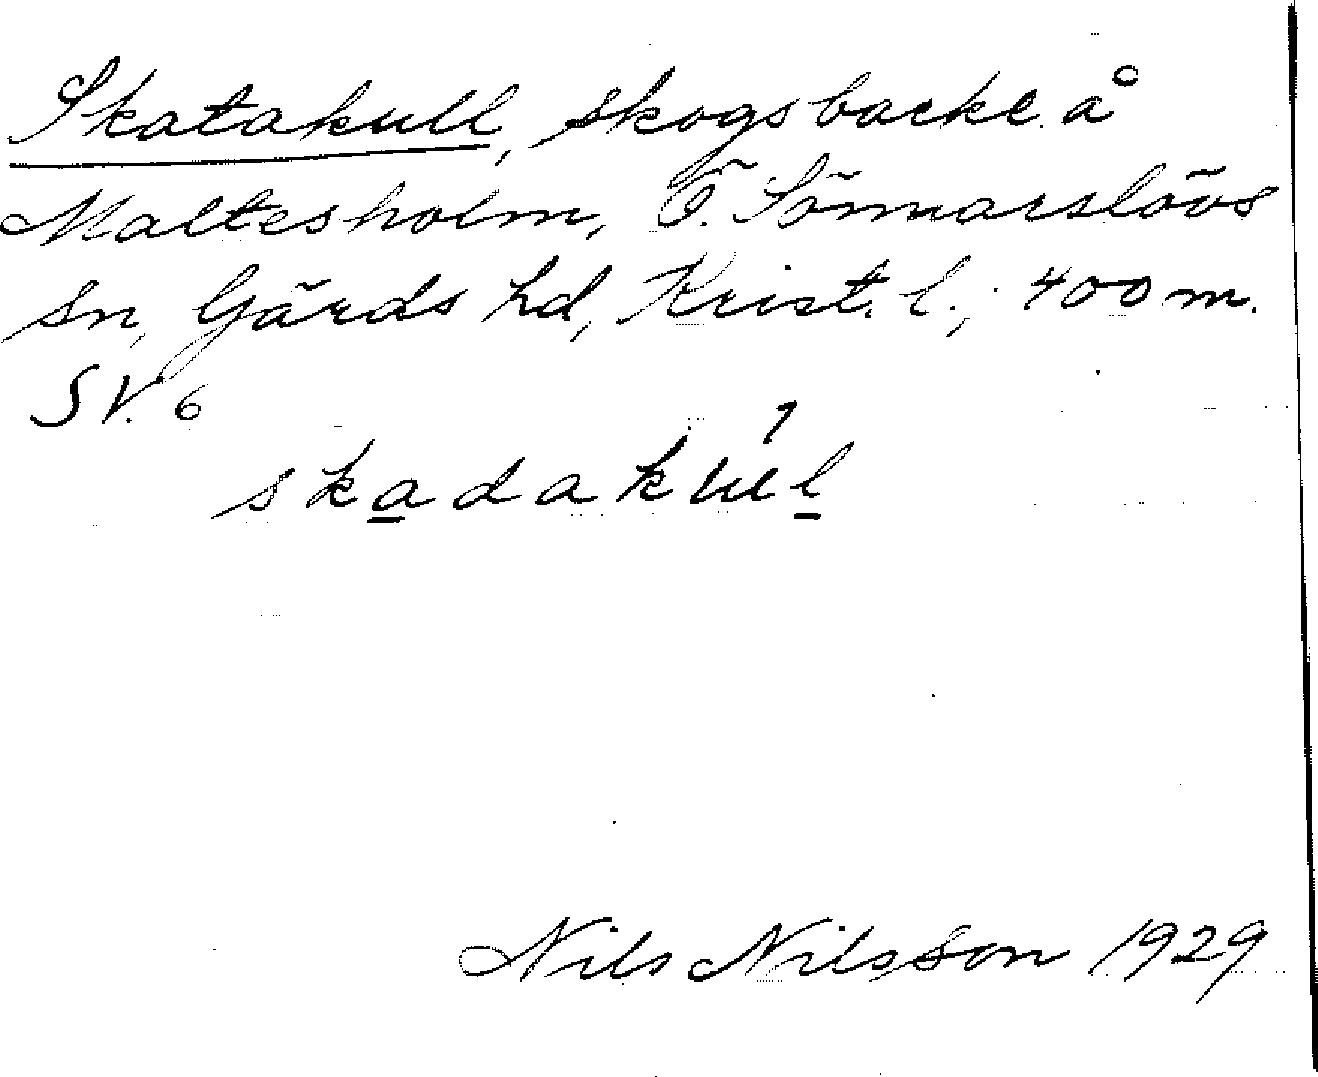 Skatakull, skogsbacke å
Maltesholm, Ö. Sönnarslövs
sn, Gärds hd, Krist. l.; 400 m.
SV. 6
skadakul
Nils Nilsson 1929